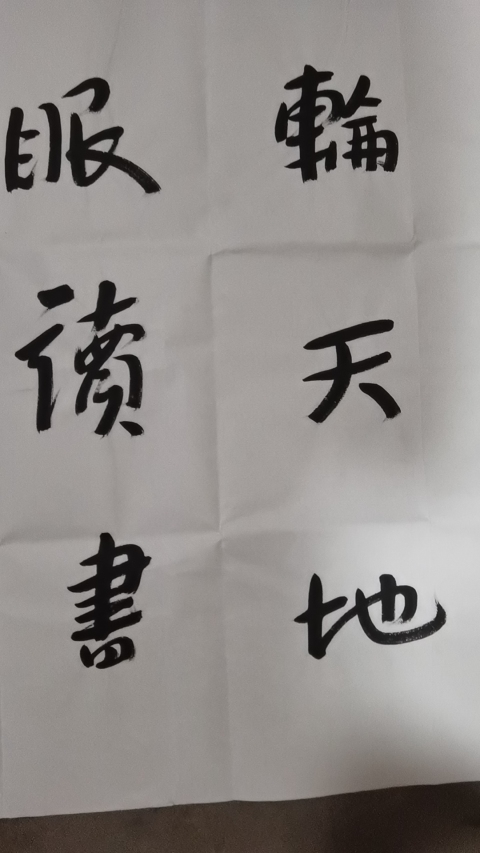 輪天地
眼讀書